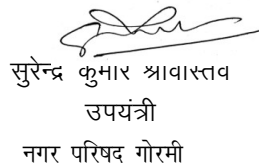 सुरेन्द्र कुमार श्रीवास्तव
उपयंत्री
नगर परिषद गोरमी